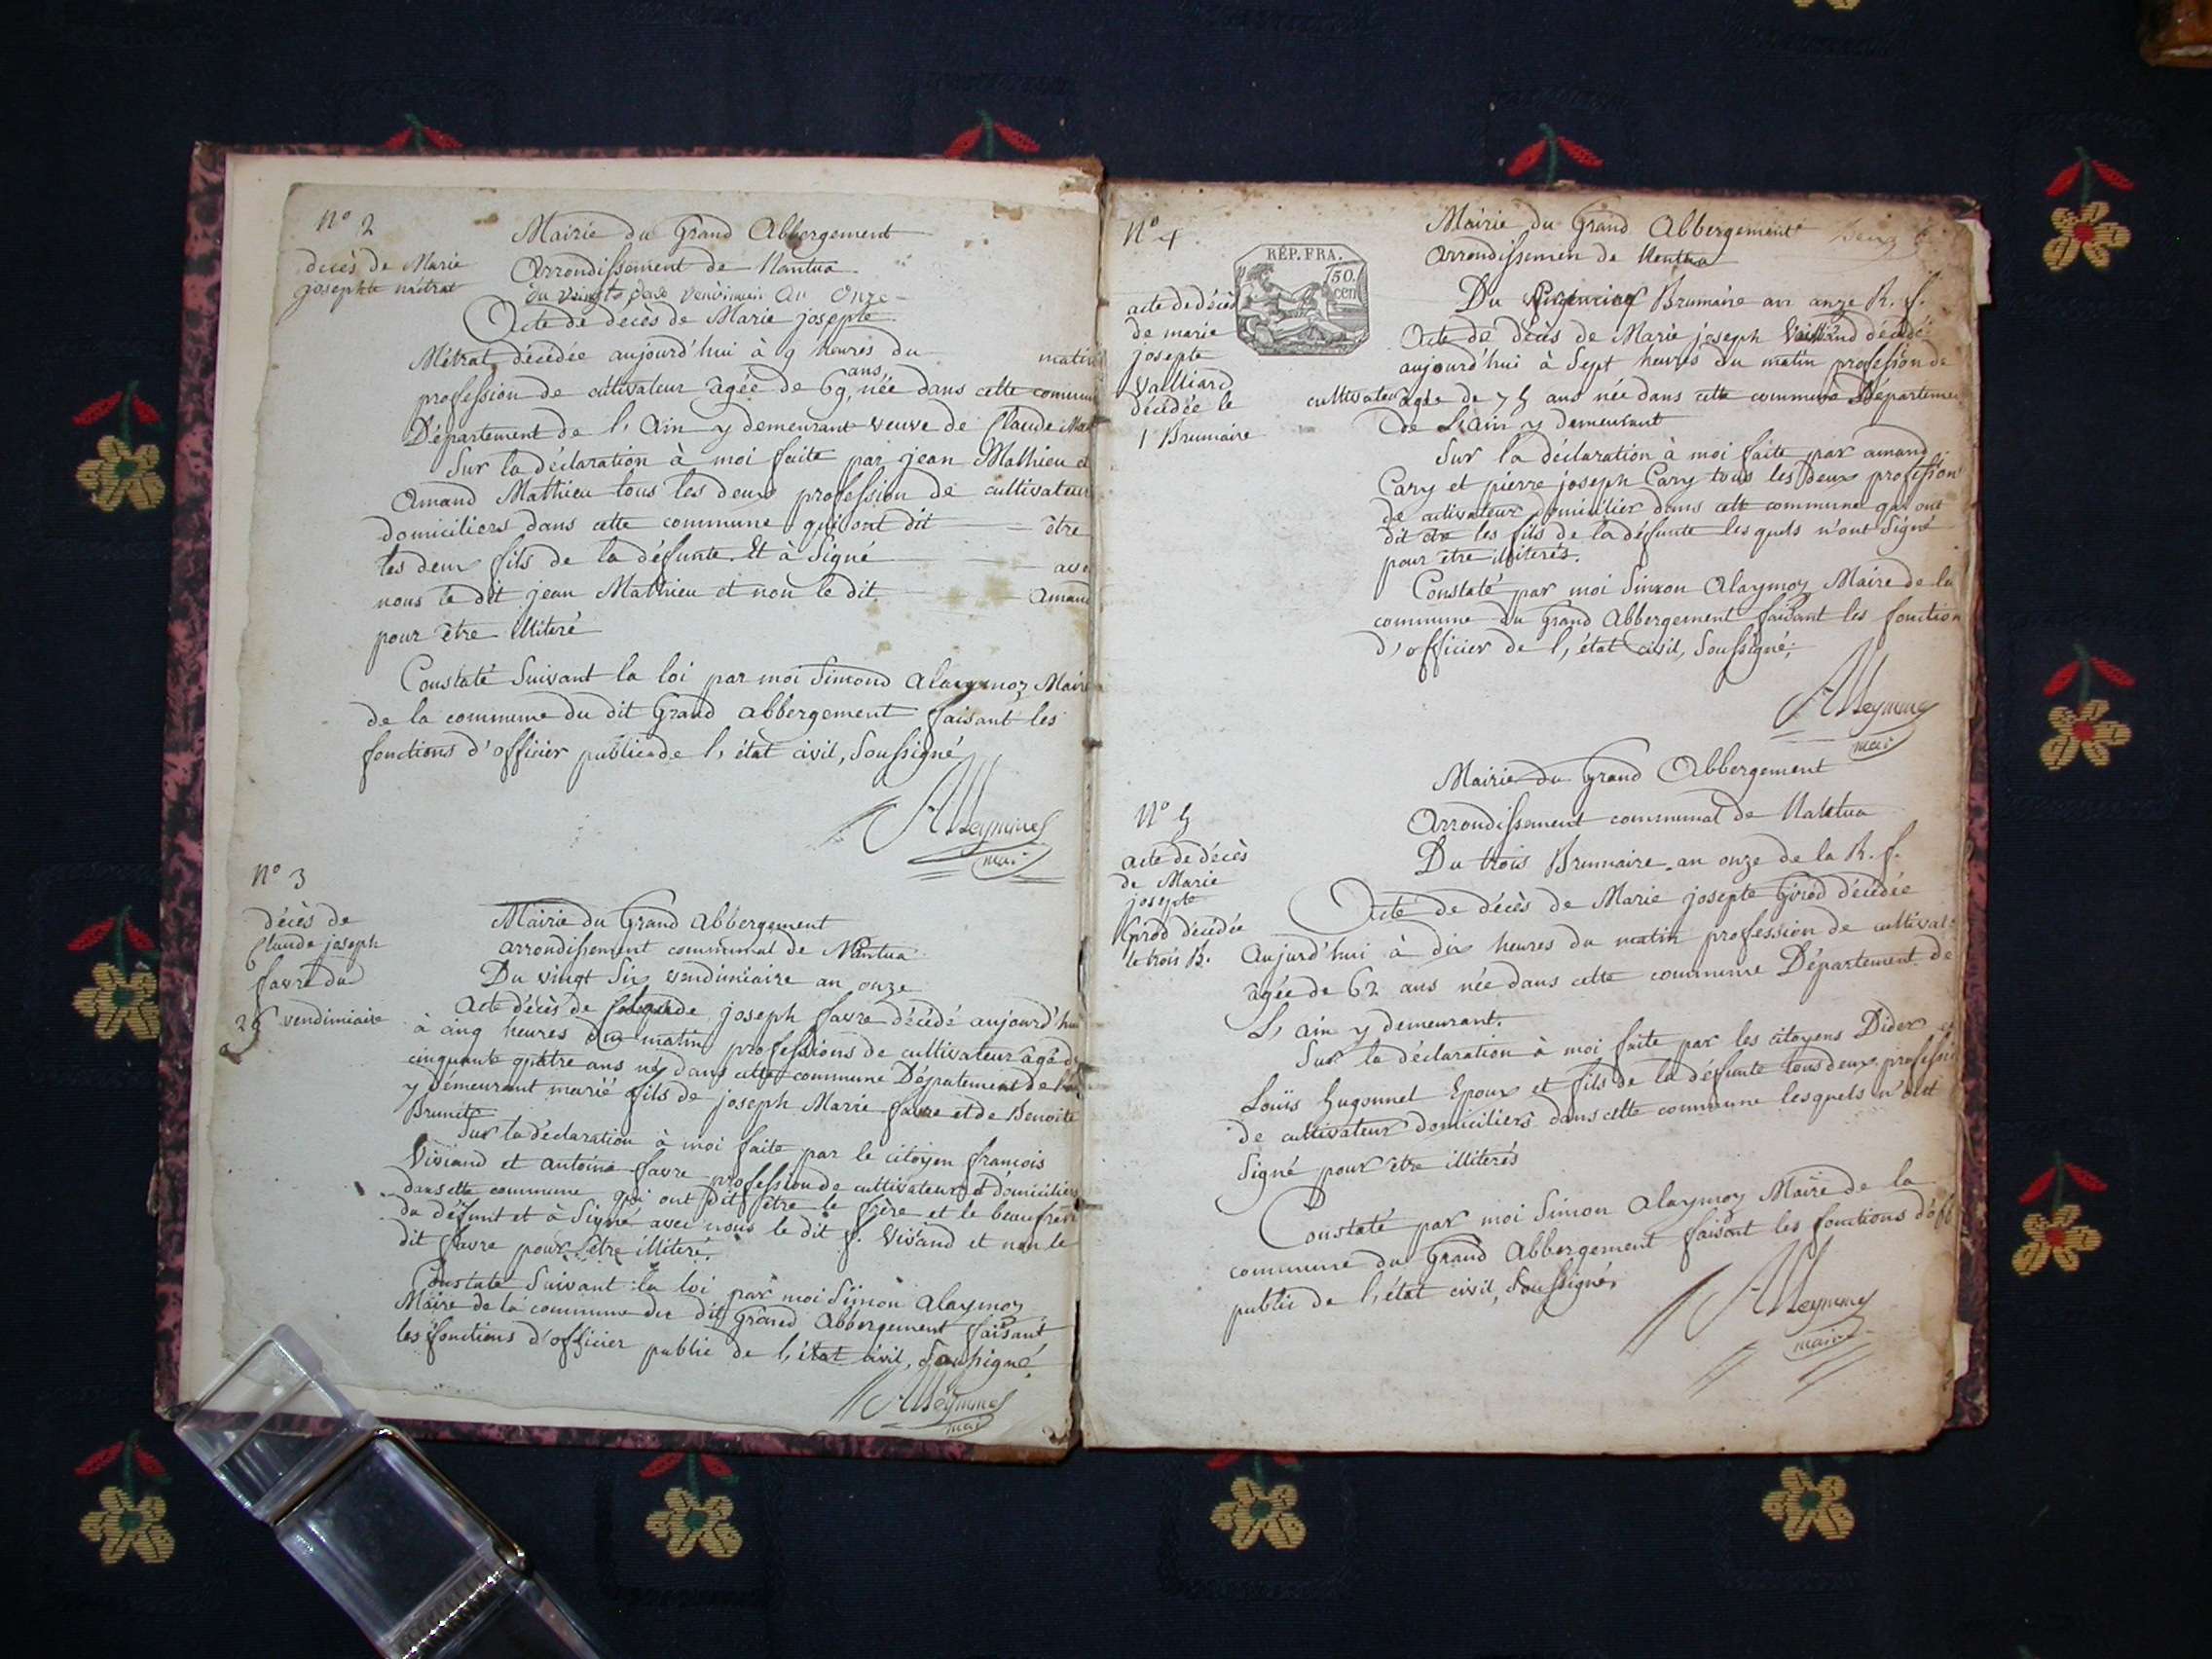 N° 2
décès de Marie
josephte métrat
Mairie du Grand Abbergement
Arrondissement de Nantua
du vingt deux vendimiair an onze
Acte de décès de Marie josepte
Métrat décédée aujourd'hui à 9 heures du matin
profession de cultivateur âgée de 69 ans, née dans cette commune
Département de l'Ain y demeurant veuve de Claude
Sur la déclaration à moi faite par jean Mathieu et
Amand Mathieu tous les deux profession de cultivateur
domiciliers dans cette commune qui ont dit être
les deux fils de la défunte. Et à Signé avec
nous le dit jean Mathieu et non le dit Amand
pour être illiteré
Constaté Suivant la loi par moi Simond Alaymoz Maire
de la commune du dit Grand abbergement faisant les
fonctions d'officier public de l'état civil, Soussigné
Alleymoz
mai
N° 3
décès de
Claude joseph
favre du
26 vendimiaire
Mairie du Grand abbergement
arrondissement communal de Nantua
Du vingt Six vendimiaire an onze
Acte décès de Claude joseph favre décédé aujourd'hui
à cinq heures du matin professions de cultivateur âgé de
cinquante quatre ans né dans cette commune Département de l'ain
y demeurant marié fils de joseph Marie favre et de Benoite
Brunet
Sur la déclaration à moi faite par le citoyen francois
Viviand et antoine favre profession de cultivateurs domiciliers
dans cette commune qui ont dit être le frère et le beaufrere
du défunt et à Signé avec nous le dit f. Viviand et non le
dit favre pour être illiteré.
Constaté Suivant la loi par moi Simon Alaymoz
Maire de la commune du dit Grand Abbergement faisant
les fonctions d'officier public de l'état civil, Soussigné
Alleymoz
mai
N° 4
RÉP. FRA.
50.
cen
acte de décès
de marie
josepte
Vailliard
décédée le
1 Brumaire
Mairie du Grand Abbergement
Arrondissemen de Nantua
Du Brumaire an onze R. f.
Acte de décès de Marie joseph décédé
aujourd'hui à Sept heures du matin profession de
cultivateur agée de 75 ans née dans cette commune Département
de L'ain y demeurant
Sur la déclaration à moi faite par amand
Cary et pierre joseph Cary tous les deux profession
de cultivateur domicilier dans cette commune qui ont
dit être les fils de la défunte les quels n'ont Signé
pour être illiterés.
Constaté par moi Simon Alaymoz Maire de la
commune du Grand Abbergement faisant les fonction
d'officier de l'état civil, Soussigné;
Alleymoz
mai
N° 5
acte de décès
de Marie
josepte
Girod décédée
le trois B.
Mairie du Grand Abbergement
Arrondissement communal de Nantua
Du trois Brumaire an onze de la R. f.
Acte de décès de Marie josepte Girod décédée
Aujourd'hui à dix heures du matin profession de cultivat
âgée de 62 ans née dans cette commune Département de
L'ain y demeurant.
Sur la déclaration à moi faite par les citoyens Didier et
Louis Hugonnet Epoux et fils de la défunte tous deux profession
de cultivateur domiciliers dans cette commune lesquels n'ont
Signé pour être illiterés
Constaté par moi Simon Alaymoz Maire de la
commune du Grand Abbergement faisant les fonctions d'off
public de l'état civil, Soussigné,
Alleymoz
maire